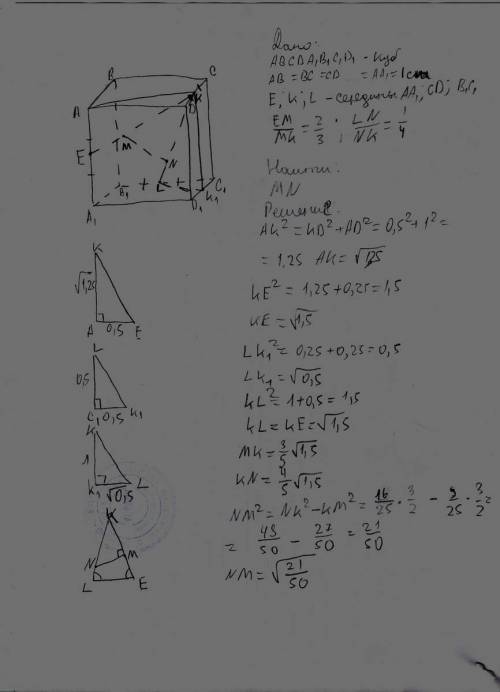 Дано:
ABCDA₁B₁C₁D₁ - куб
AB = BC = CD = AA₁ = 1см
E; K; L - середины AA₁; CD; B₁C₁
EM/MK = 2/3 ; LN/NK = 1/4
Найти:
MN
Решение:
AK² = KD² + AD² = 0,5² + 1² =
= 1,25 AK = √1,25
KE² = 1,25 + 0,25 = 1,5
KE = √1,5
LK₁² = 0,25 + 0,25 = 0,5
LK₁ = √0,5
KL² = 1 + 0,5 = 1,5
KL = KE = √1,5
MK = 3/5 √1,5
KN = 4/5 √1,5
NM² = NK² - KM² = 16/25 · 3/2 - 9/25 · 3/2 =
= 48/50 - 27/50 = 21/50
NM = √21/50
B
C
A
K
D
E
M
N
B₁
L
C₁
K₁
A₁
D₁
K
√1,25
A 0,5 E
L
0,5
C₁ 0,5 K₁
K
1
K₁ √0,5 L
K
N
M
L
E